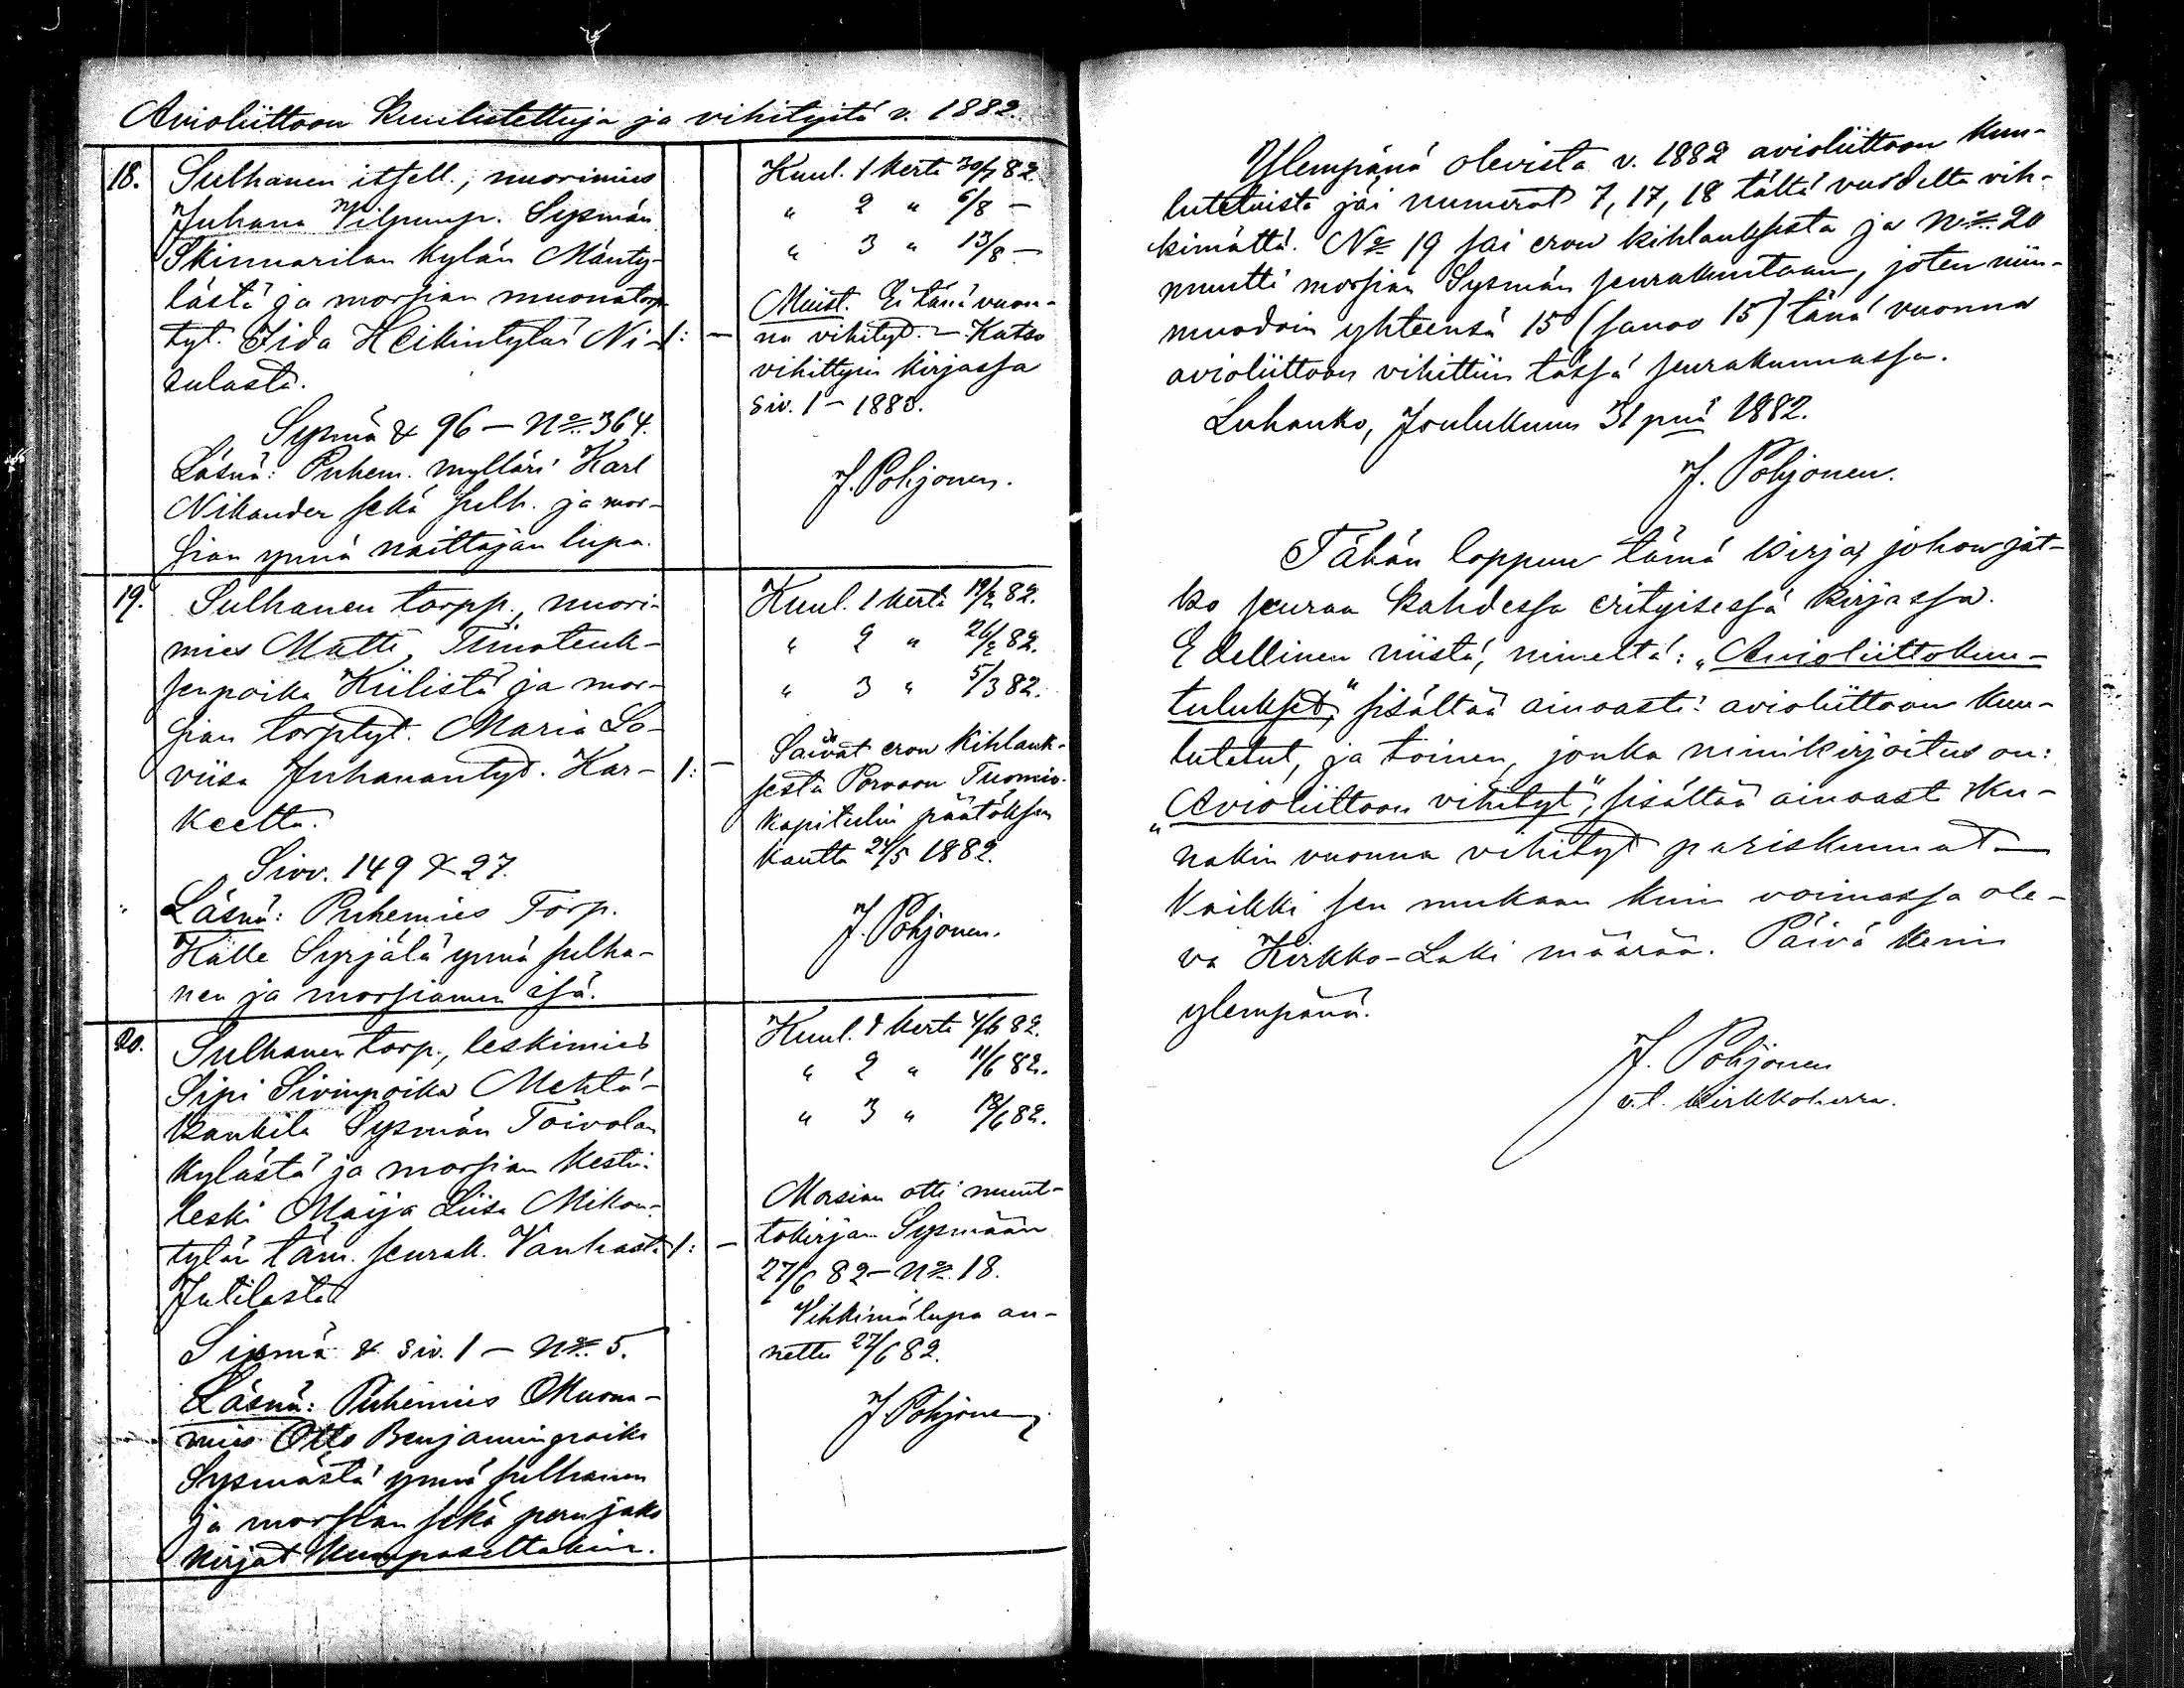 Avioliittoon Kuulutettuja ja vihityitä v. 1882.
18.
Sulhanen itsell., nuorimies
Juhana Vilpunp. Sysmän
Skinnarilan kylän Mänty-
lästä ja morsian muonatorp.
tyt. Iida Heikintytär Ni-
sulasta.
Sysmä & 96 – No 364.
Läsnä: Puhem. mylläri Karl
Nikander sekä sulh. ja mor-
sian ynnä naittajan lupa.
1: –
Kuul. 1 kerta 30/7 82.
" 2 " 6/8 –
" 3 " 13/8 –
Muist. Ei tänä vuon-
na vihityt. – Katso
vihittyin kirjassa
siv. 1 – 1883.
J. Pohjonen.
19.
Sulhanen torpp., nuori-
mies Matti Timoteuk-
senpoika Kiilistä ja mor-
sian torptyt. Maria Lo-
viisa Juhanantyt. Har-
keetta.
Sivv. 149 & 27.
Läsnä: Puhemies Torp.
Kalle Syrjälä ynnä sulha-
nen ja morsiamen isä.
1: –
Kuul. 1 kerta 19/2 82.
" 2 " 26/2 82.
" 3 " 5/3 82.
Saivat eron kihlauk-
sesta Porvoon Tuomio-
kapitulin päätöksen
kautta 24/5 1882.
J. Pohjonen.
20.
Sulhanen torp., leskimies
Sipi Sivinpoika Mehtä-
kankila Sysmän Toivolan
kylästä ja morsian kesti-
leski Maija Liisa Mikon-
tytär täm. seurak. Vanhasta
Jutilasta
Sysmä & siv. 1 – No 5.
Läsnä: Puhemies Muona-
mies Otto Benjaminpoika
Sysmästä ynnä sulhanen
ja morsian sekä perujako
kirjat kummaseltakin.
1: –
Kuul. 1 kerta 4/6 82.
" 2 " 11/6 82.
" 3 " 18/6 82.
Morsian otti muut-
tokirjan Sysmään
27/6 82 – No 18.
Vihkimälupa an-
nettu 27/6 82.
J. Pohjonen
Ylempänä olevista v. 1882 avioliittoon kuu-
lutetuista jäi numerot 7, 17, 18 tältä vuodelta vih-
kimättä. No 19 sai eron kihlauksesta ja No 20
muutti morsian Sysmän seurakuntaan, joten niin-
muodoin yhteensä 15 (sanoo 15) tänä vuonna
avioliittoon vihittiin tässä seurakunnassa.
Luhanko, Joulukuun 31 pnä 1882.
J. Pohjonen.
Tähän loppuu tämä kirja, johon jat-
ko seuraa kahdessa erityisessä kirjassa.
Edellinen niistä, nimeltä: „Avioliittokuu-
lutukset," sisältää ainoasti avioliittoon kuu-
lutetut, ja toinen, jonka nimikirjoitus on:
„Avioliittoon vihityt", sisältää ainoast. ku-
nakin vuonna vihityt pariskunnat –
Kaikki sen mukaan kuin voimassa ole-
va Kirkko-Laki määrää. Päivä kuin
ylempänä.
J. Pohjonen
v.t. kirkkoherra.